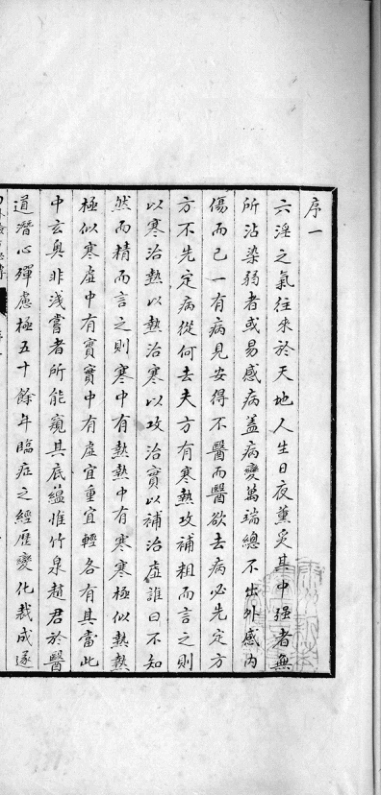 序一
六淫之氣往來於天地人生日夜薰炙其中强者無
所沾染弱者或易感病蓋病變萬端總不出外感内
傷而已一有病見安得不醫而醫欲去病必先定方
方不先定病從何去夫方有寒熱攻補粗而言之則
以寒治熱以熱治寒以攻治實以補治虚誰曰不知
然而精而言之則寒中有熱熱中有寒寒極似熱熱
極似寒虚中有實實中有虚宜重宜輕各有其當此
中玄奥非浅嘗者所能窺其底蘊惟竹泉趙君於醫
道潛心殫慮極五十餘年臨症之經歷變化裁成遂